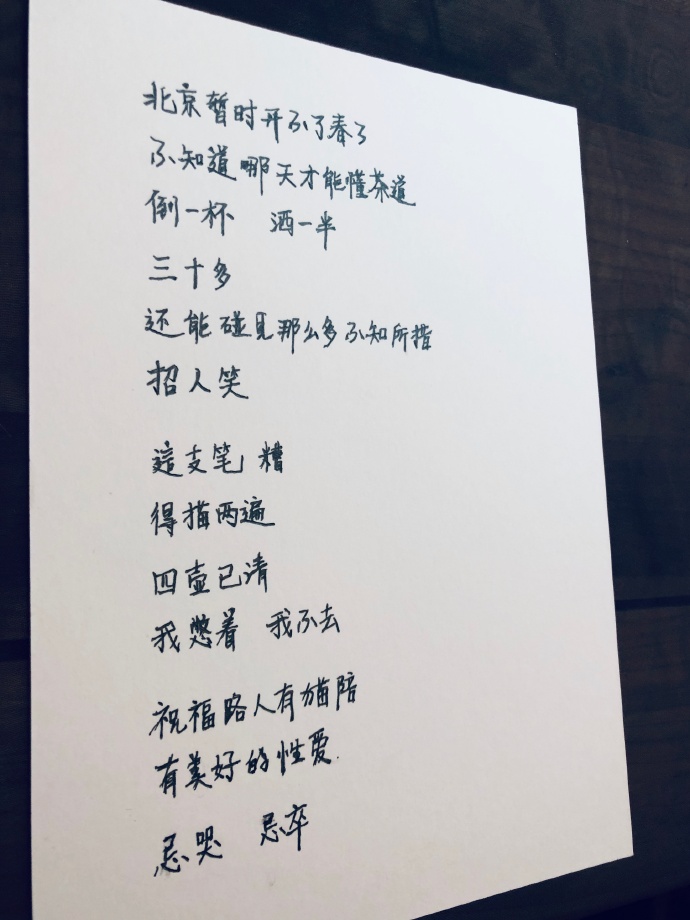 北京暂时开不了春了
不知道哪天才能懂茶道
倒一杯 酒一半
三十多
还能碰见那么多不知所措
招人笑
這支笔 糟
得描两遍
四壶已清
我憋着 我不去
祝福路人有猫陪
有美好的性爱
忌哭 忌卒